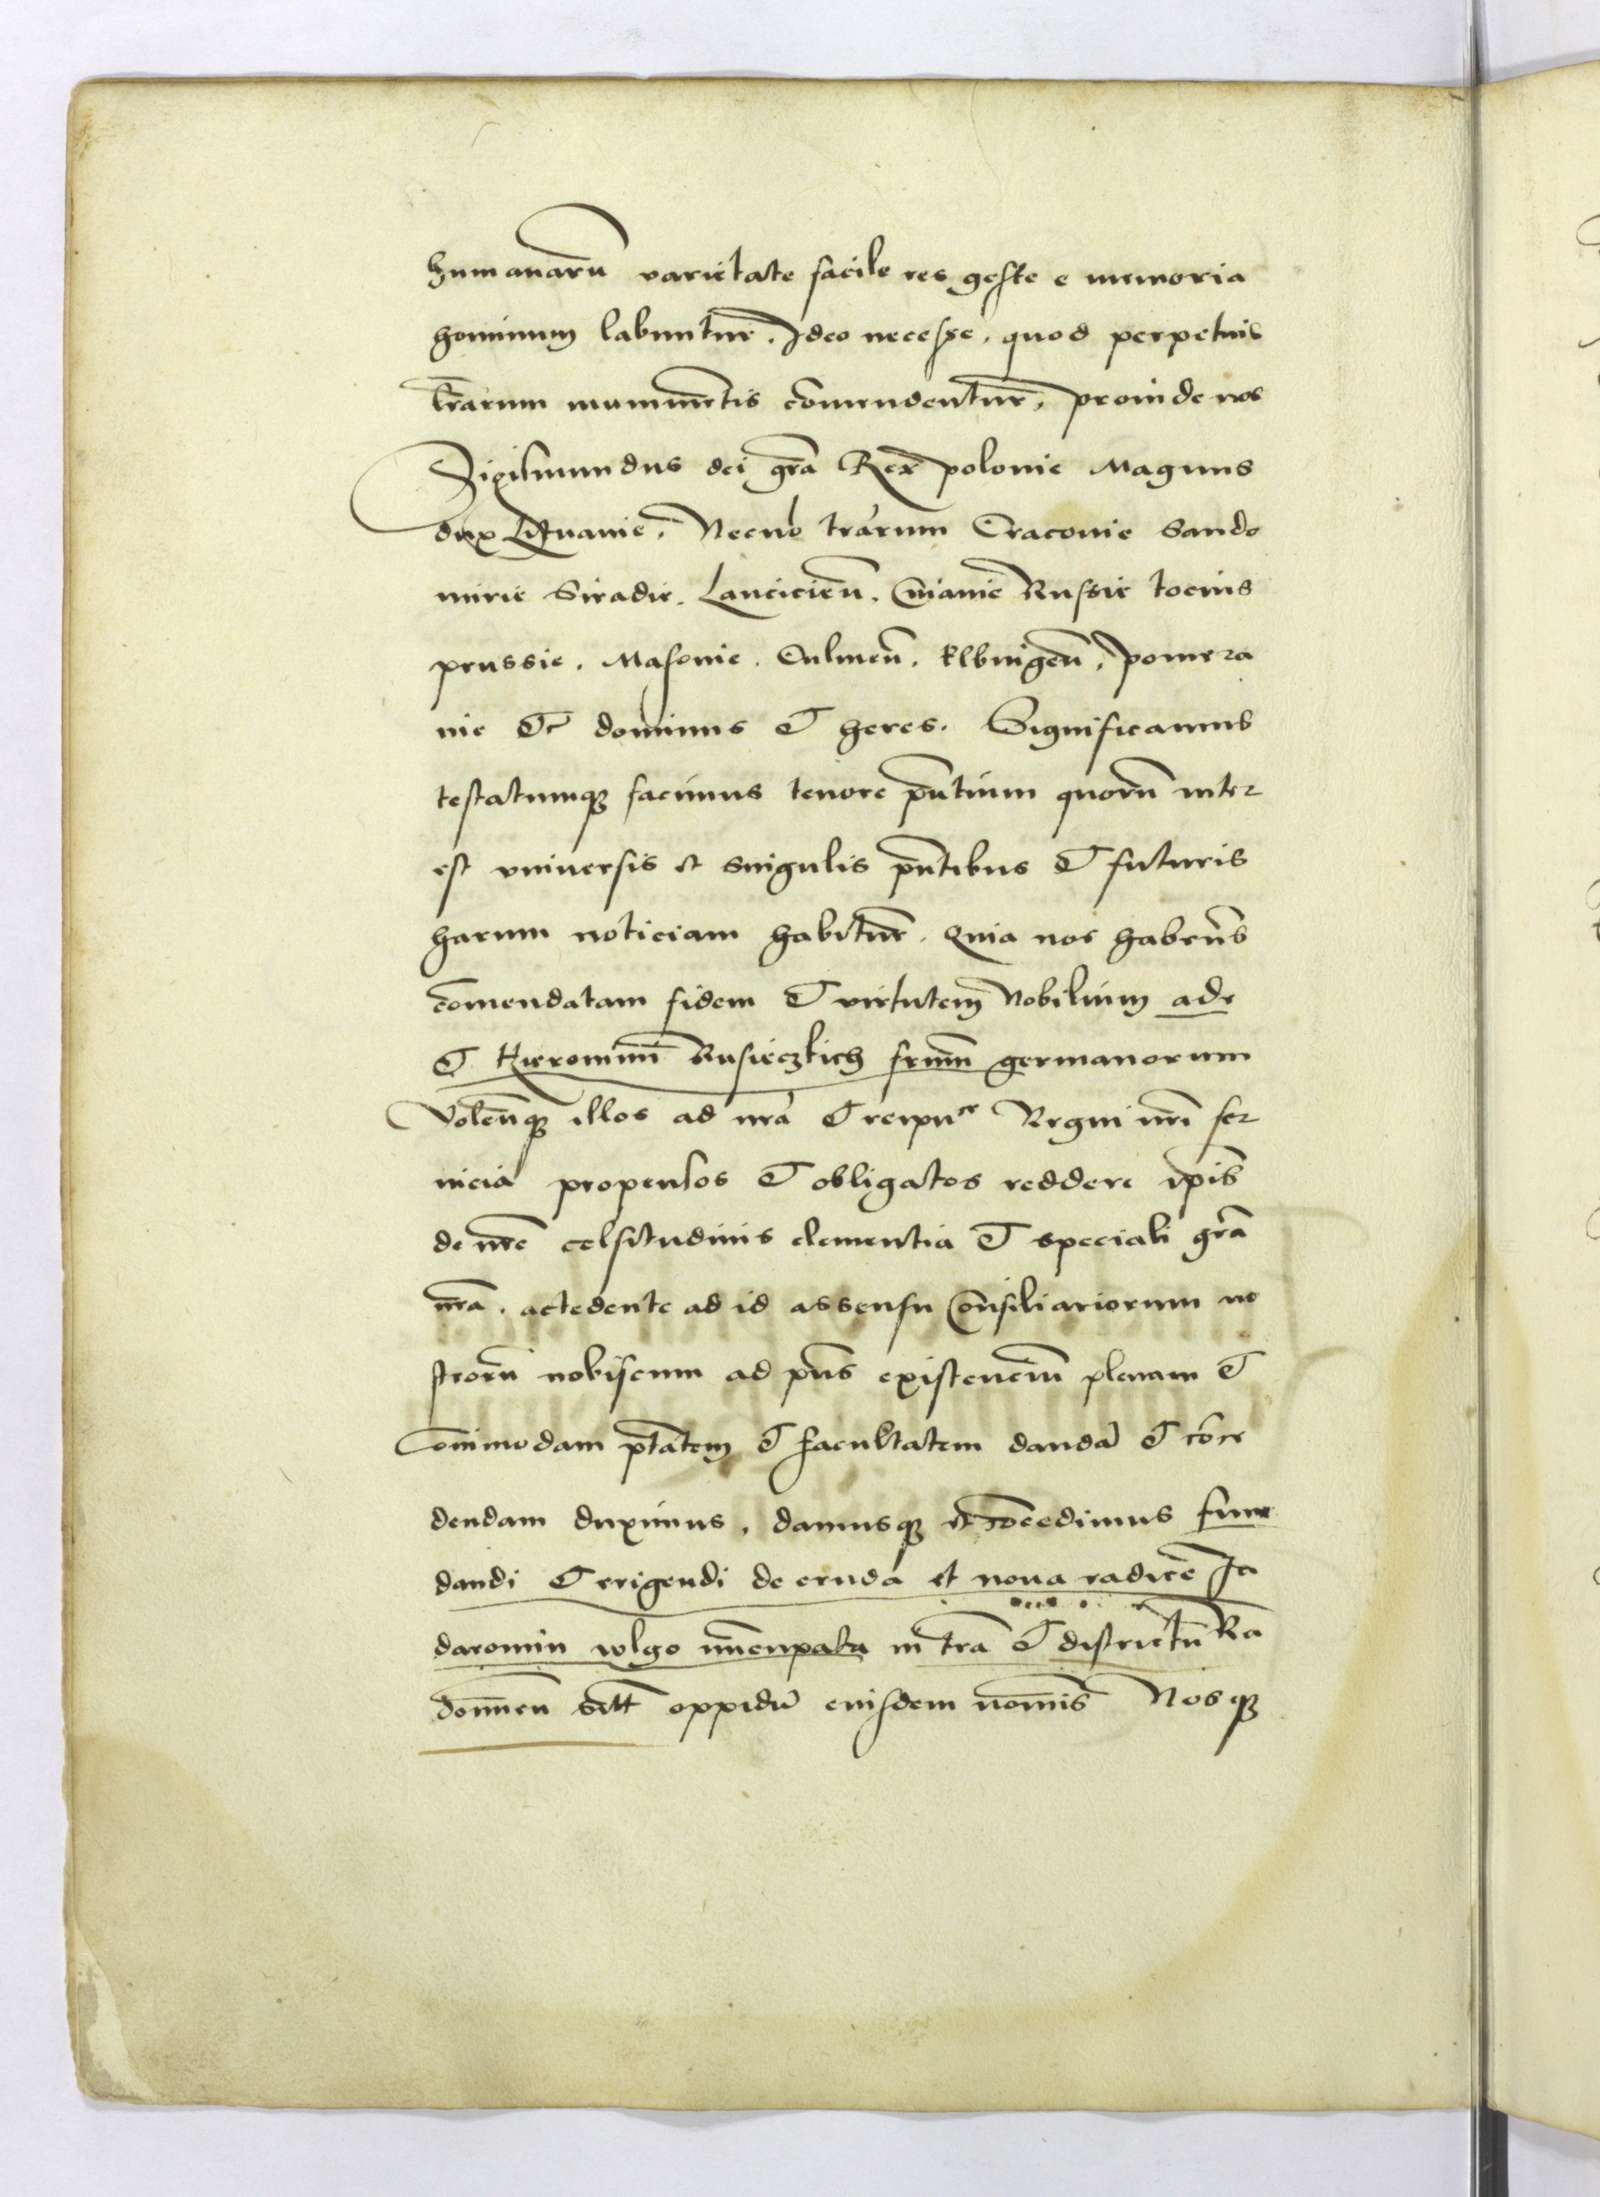 humanarū varietate facile res geste e memoria
hominum labuntur. Ideo necesse. quod perpetuis
lrarum munimentis comendentur, proinde nos
Sigismundus dei gra Rex polonie Magnus
dux Lituanie, Necnō trarum Cracouie Sando
mirie Siradie. Lancicieñ. Cuiauie Russie tocius
prussie. Masouie. Culmeñ. Elbingeñ. pomera
nie Etc dominus Et heres. Significamus
testatumq3 facimus tenore pñtium quorū inter
est vniuersis et singulis pñtibus Et futuris
harum noticiam habitur. Quia nos habeñs
comendatam fidem Et virtutem Nobilium ade
Et Hieronimi Rusieczkich frum germanorum
Voleñq3 illos ad nrā Et reipuce Regni nri ser
uicia propensos Et obligatos reddere ipīs
de nre celsitudinis clementia Et speciali grā
nrā. accedente ad id assensu Consiliariorum no
strorū nobiscum ad pñs existenciū plenam Et
Omnimodam ptātem Et facultatem dandā Et cōce
dendam duximus, damusq3 et cōcedimus fun
dandi Et erigendi de cruda et noua radice In
daromin wlgo nūcupata in tra Et districtu Ra
domieñ sitt oppidū eiusdem nomīs Nosq3